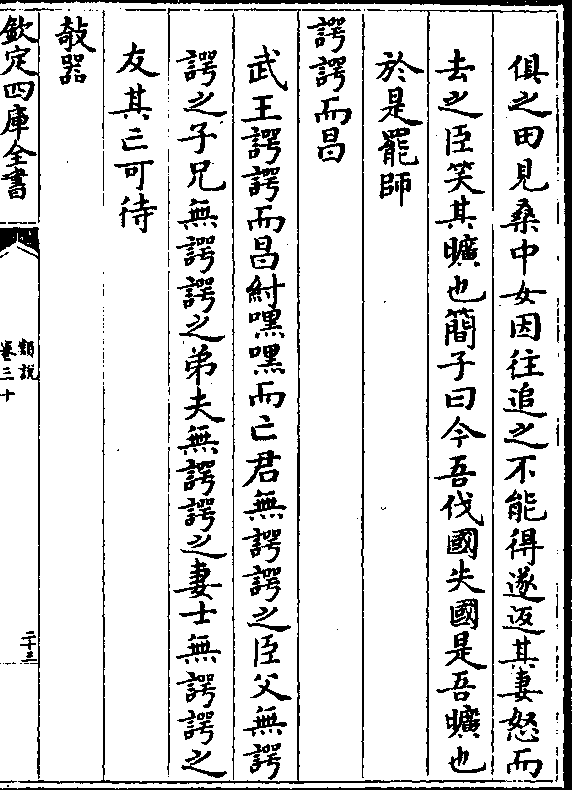 俱之田見桑中女因往追之不能得遂返其妻怒而
去之臣笑其曠也簡子曰今吾伐國失國是吾曠也
於是罷師
諤諤而昌
武王諤諤而昌紂嘿嘿而亡君無諤諤之臣父無諤
諤之子兄無諤諤之弟夫無諤諤之妻士無諤諤之
友其亡可待
敧器
欽定四庫全書
類說
卷三十
二十三